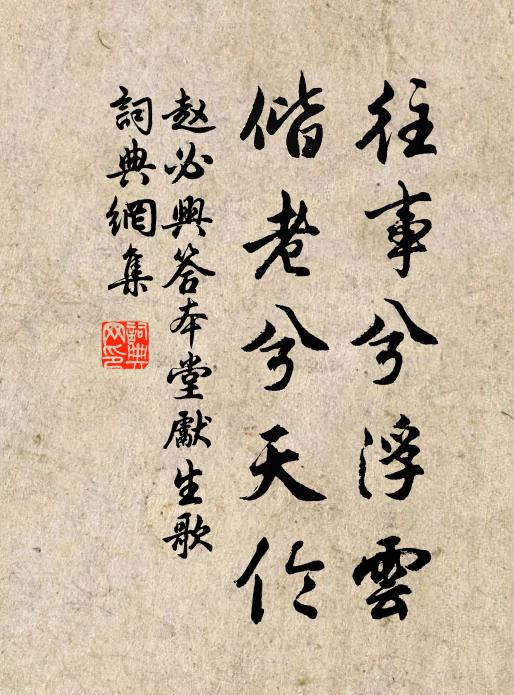 往事兮浮雲
偕老兮天伦
赵必興答本堂獻生歌
詞典網集
詞典
网印